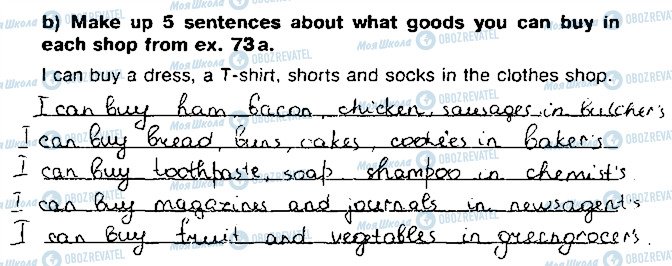 b) Make up 5 sentences about what goods you can buy in
each shop from ex. 73 a.
I can buy a dress, a T-shirt, shorts and socks in the clothes shop.
I can buy ham, bacon, chicken, sausages in butcher's
I can buy bread, buns, cakes, cookies in baker's
I can buy toothpaste, soap shampoo in chemist's
I can buy magazines and journals in newsagent's
I can buy fruit and vegetables in greengrocer's.